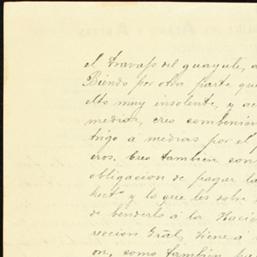 el travajo del guayule, a
Biendo por otra parte que
elto muy insolente, y ac
medias, creo combenien
tingo a medias por el p
eros. Creo tambien con
obligacion de pagar la
hect^s y lo que les sobre
de benderlo á la Nacio
reccion Gral, tiene á
on, como tambien pa